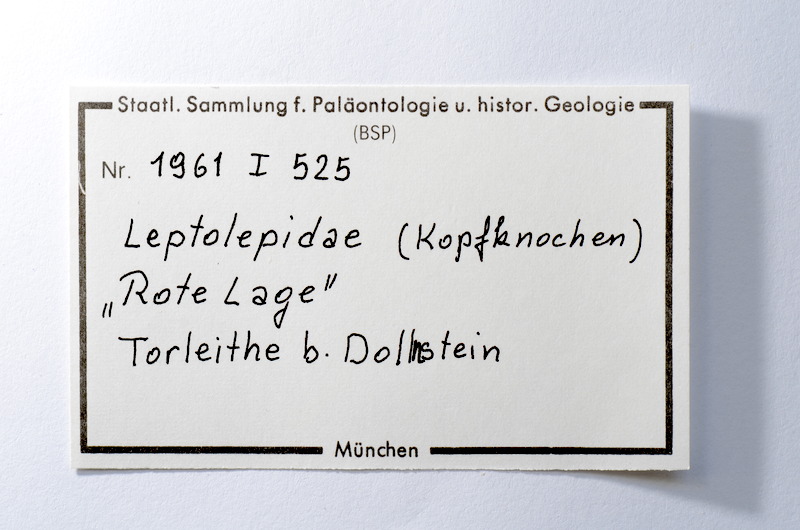 Staatl. Sammlung f. Paläontologie u. histor. Geologie
(BSP)
Nr. 1961 I 525
Leptolepidae (Kopfknochen)
„Rote Lage"
Torleithe b. Dollnstein
München